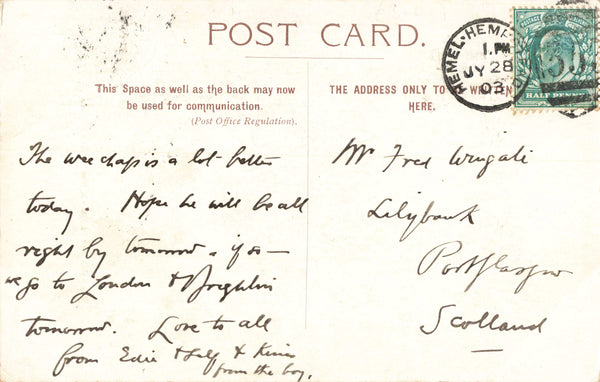 POST CARD.
This Space as well as the back may now
be used for communication.
(Post Office Regulation).
The wee chap is a lot better
today. Hope he will be all
right by tomorrow. if so —
we go to London & Brighton
tomorrow. Love to all
from Edie & Salf & Kisses
from the boy.
THE ADDRESS ONLY TO BE WRITTEN
HERE.
Mr Fred Wingate
Lilybank
Port Glasgow
Scotland
HEMEL-HEMP
1.PM
JY 28
03
POSTAGE
HALF PENNY